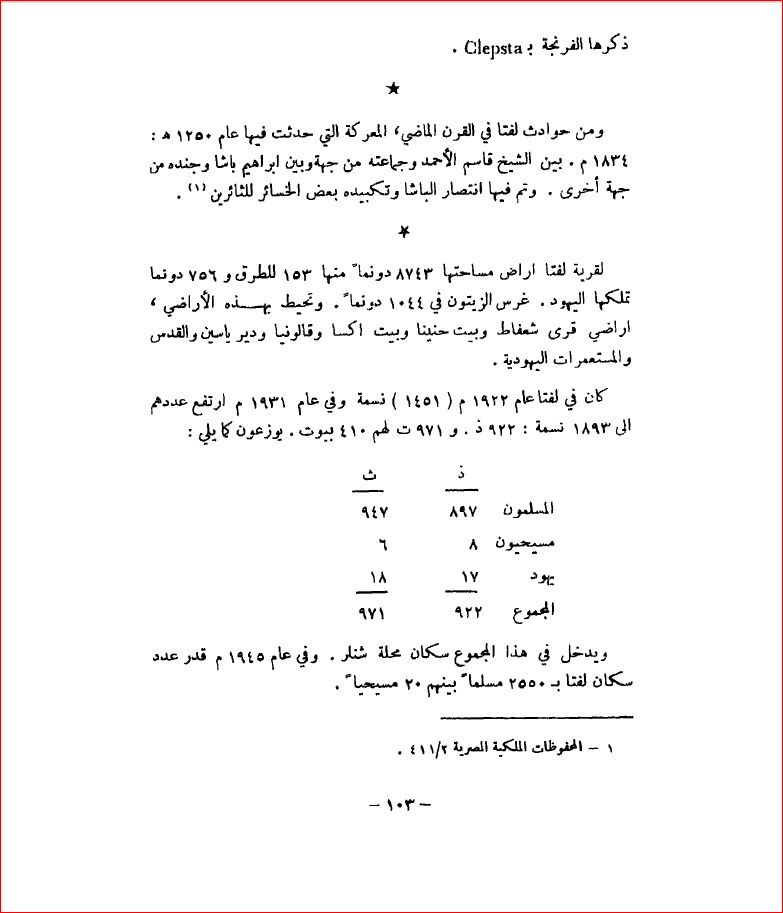 ذكرها الفرنجة بـ Clepsta .
★
ومن حوادث لفتا في القرن الماضي، المعركة التي حدثت فيها عام ١٢٥٠ ھ :
١٨٣٤ م . بين الشيخ قاسم الأحمد وجماعته من جهة وبين ابراهيم باشا وجنده من
جهة أخرى . وتم فيها انتصار الباشا وتكبيده بعض الخسائر للثائرين (١) .
★
لقرية لفتا اراض مساحتها ٨٧٤٣ دونماً منها ١٥٣ للطرق و ٧٥٦ دونما
تملكها اليهود . غرس الزيتون في ١٠٤٤ دونماً . وتحيط بهـــذه الأراضي ،
اراضي قرى شعفاط وبيت حنينا وبيت اكسا وقالونيا ودير ياسين والقدس
والمستعمرات اليهودية .
كان في لفتا عام ١٩٢٢ م ( ١٤٥١ ) نسمة وفي عام ١٩٣١ م ارتفع عددهم
الى ١٨٩٣ نسمة : ٩٢٢ ذ . و ٩٧١ ت لهم ٤١٠ بيوت . يوزعون كما يلي :
ذ ث
المسلمون ٨٩٧ ٩٤٧
مسيحيون ٨ ٦
يهود ١٧ ١٨
المجموع ٩٢٢ ٩٧١
ويدخل في هذا المجموع سكان محلة شنلر . وفي عام ١٩٤٥ م قدر عدد
سكان لفتا بـ ٢٥٥٠ مسلماً بينهم ٢٠ مسيحياً .
١ – المحفوظات الملكية المصرية ٤١١/٢ .
– ١٠٣ –